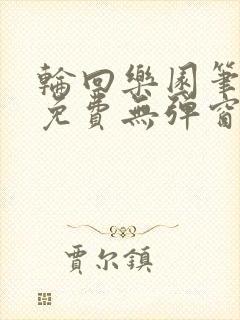 輪回樂園筆
免費無彈窗
賈尔鎮